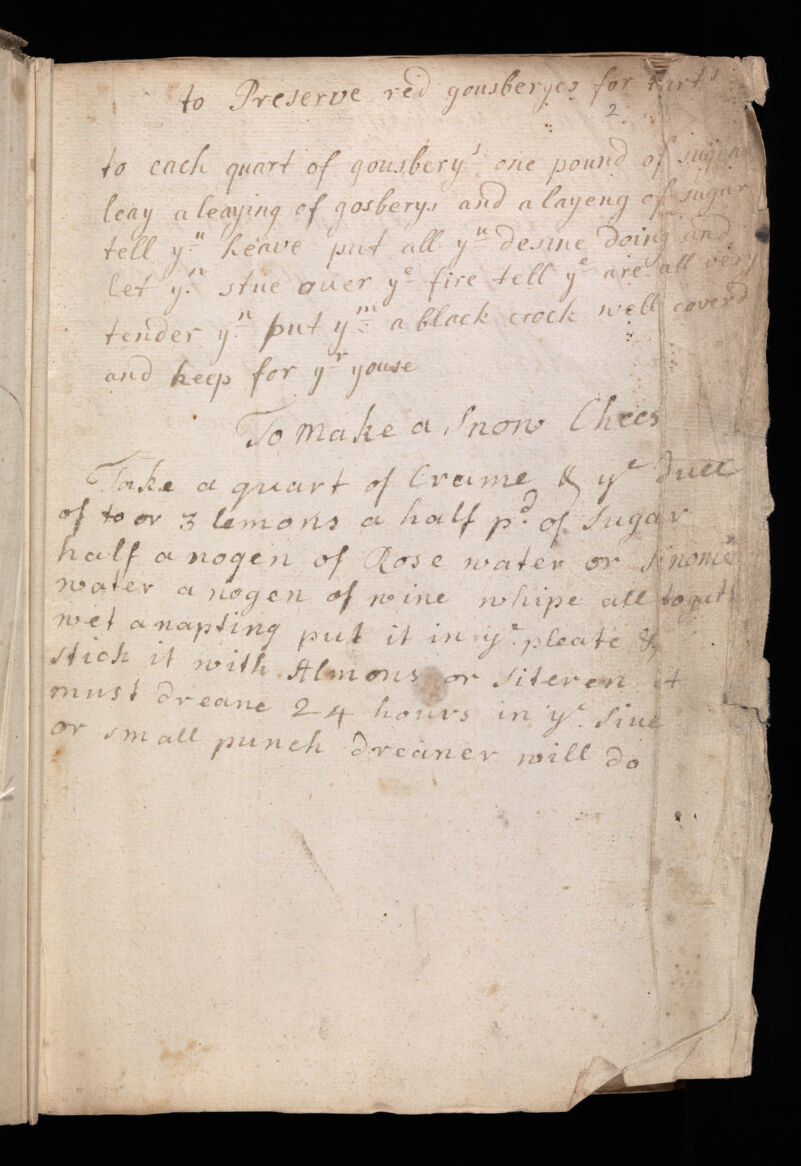 to Preserve red gousberyes for tarts
2
to each quart of gousbery's one pound of sugear
leay a leaying of gosberys and a layeng of sugar
tell yn heave put all yn desine doing and
let yn stue ouer ye fire tell ye are all very
tender yn put ym a black crock well coverd
and keep for yr youse
To make a Snow Chees
Take a quart of Creme & ye Juce
of to or 3 lemons a half pd of Sugar
half a nogen of Rose water or
water a nogen of wine whipe all
wet a napting put it in ye pleate &
stick it with Almons or siteren it
must dreane 24 hours in ye Siue
or small punch dreaner will do